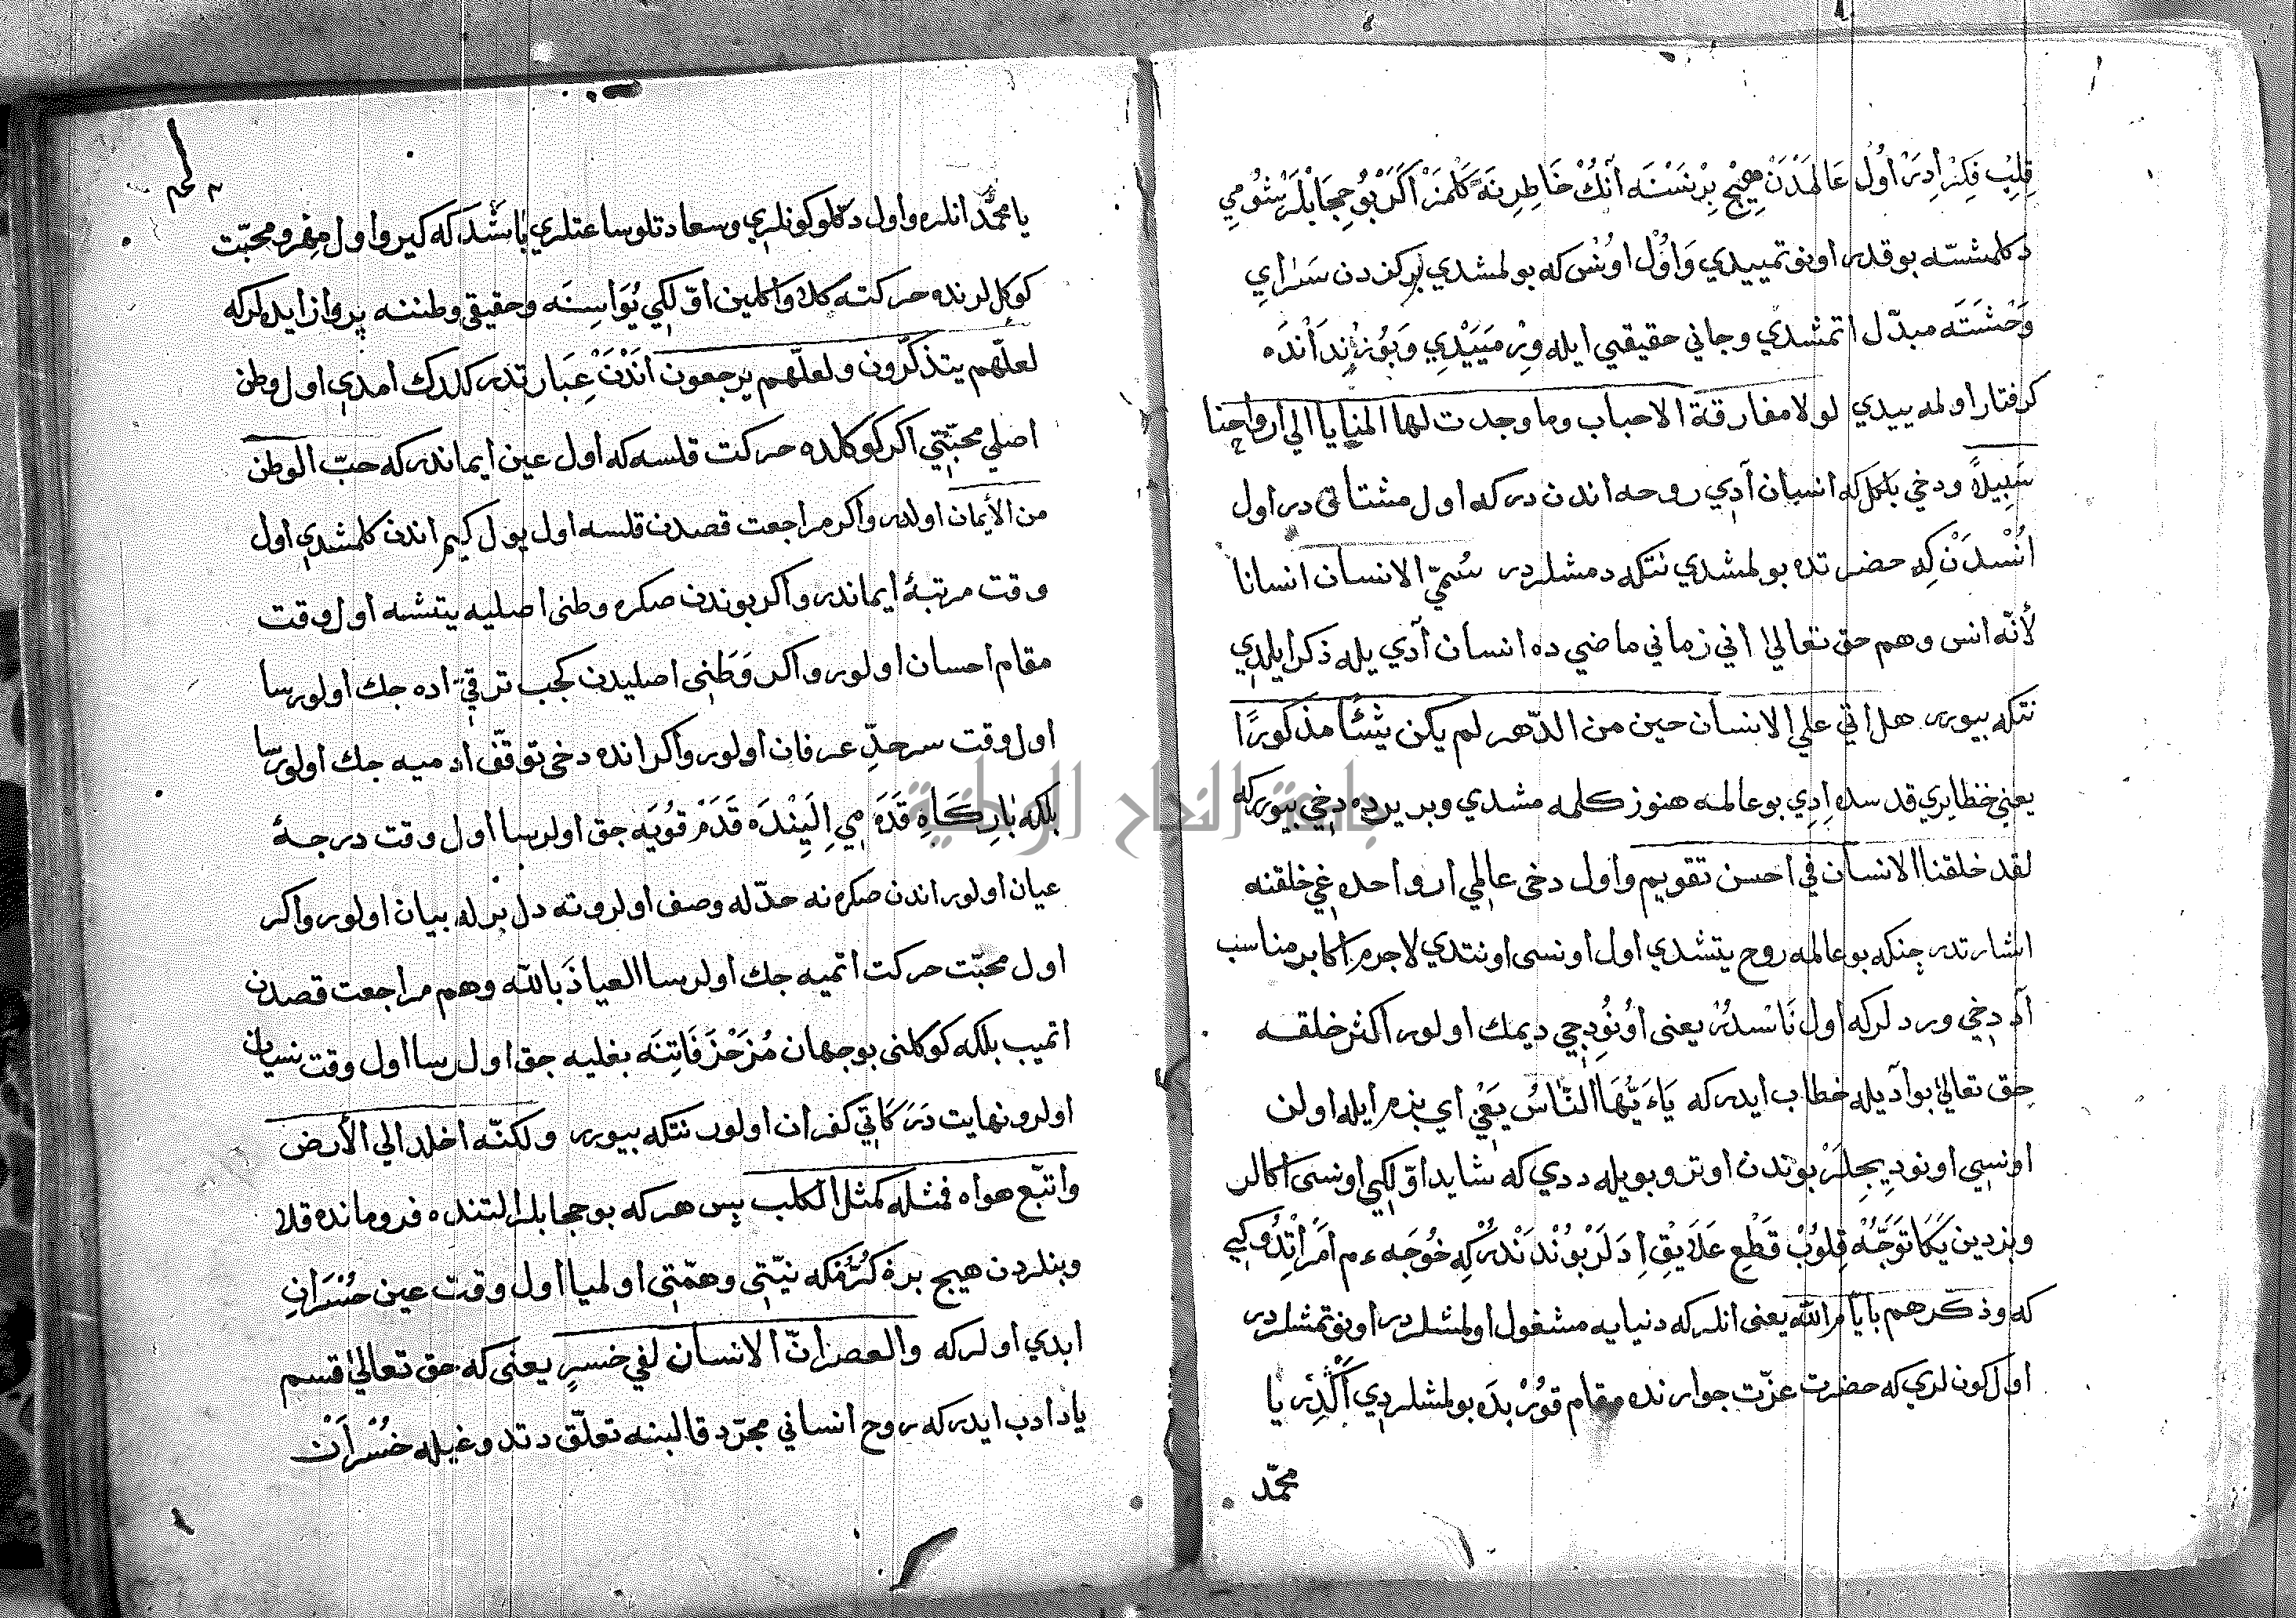 قِلِبْ فِكِرْ أدَرْ أوُل عَالَمْدَنْ هِيچْ بِرْنَسْنَه آنُكْ خَاطِرِنَه كَلْمَزْ اَكَرْ بُو حِجَابْلَرْ شُومِي
دكلمشسه بو قدر اونوتمييدي وَاوُل اوُنْس كه بولمشدي بركزدن سَزايِ
وَحْشَتَه مبدّل اتمشدي وجاني حقيقيي ايله وِرْمَيَيْدِي وَبُو
كرفتار اولمه ييدي لولا مفارقة الاحباب وما وجدت لها المنايا الي ارواحنا
سَبِيلاً ودخي بلكل كه انسان آدي روحه اندن در كه اول مشتاق در اول
اُنْسدَنْ كِه حضرتده بولمشدي نتكه دمشلردر سُمّي الانسان انسانا
لأنّه انس وهم حق تعالي اني زماني ماضي ده انسان آدي يله ذكر ايلدي
نتكه بيورر هل اتي علي الانسان حين من الدّهر لم يكن شئًا مذكورًا
يعني خظايري قدسده اِدِي بو عالمه هنوز كلمه مشدي وبر يرده دخي بيورر كه
لقد خلقنا الانسان في احسن تقويم واول دخي عالمي ارواحده غي خلقنه
اشارتدر چنكه بو عالمه روح يتشدي اول اونسي اونتدي لاجرم اكا بر مناسب
آد دخي وردلر كه اول نَاسْدُرْ يعني اوُنُودِجي ديمك اولور اكثر خلقه
حق تعالي بو آديله خطاب ايدر كه يَاءَيُّهَا النَّاسُ يَعْنِي اي بزم ايله اولن
اونسي اونودِيجِلَرْ بوندن اوترو بويله ددي كه شايد اوّلكي اونسي اكالر
وبزدين يَكَا تَوَجُّهْ قِلوُبْ قَطْعِ عَلاَيِقْ اِدَلَرْ بُونْدَنْدُرْ كِه خُوجَه ءم اَمْر اتِدُوكِي
كه وذكّرهم بايّام الله يعني انلر كه دنيايه مشغول اولمشلردر اونوتمشلردر
اول كونلري كه حضرت عزّت جوارنده مقام قوُرْبدَه بولمشلردي اَكْدِرْ يا
محمّد
يا محمّد انلره واول دكلو كونلري وسعادتلو ساعتلري باشَدَ كه كيرو اول مهر ومحبّت
كوكللرنده حركته كله واكلين اوّلكي يُوَاسِنَه وحقيقي وطننه پرواز ايدلر كه
لعلّهم يتذكّرون ولعلّهم يرجعون اَنْدَنْ عِبَارتدر كلدك امدي اول وطن
اصلي محبّتي اكر كوكلده حركت قلسه كه اول عين ايماندر كه حبّ الوطن
من الأيمان اولدر واكر مراجعت قصدن قلسه اول يول كيم اندن كلمشدي اول
وقت مرتبۀ ايماندر واكر بوندن صكره وطني اصليه يتشه اول وقت
مقام احسان اولور واكر وَطَني اصليدن كچب ترقّي اده جك اولورسا
اول وقت سرحدِّ عرفان اولور واكر انده دخي توقّف ادميه جك اولورسا
بلكه بارِكَاهِ قَدَمِي اِلَيِنْدَه قَدَمْ قُويَه جق اولرسا اول وقت درجۀ
عيان اولور اندن صكره نه حدّله وصف اولر ونه دل برله بيان اولور واكر
اول محبّت حركت اتميه جك اولرسا العياذ بالله وهم مراجعت قصدن
اتميب بلكه كوكلني بو جهان مُزَخْرَفَاتِنَه بغليه جق اولرسا اول وقت نسيان
اولر ونهايت دَرَكَاتي كفران اولور نتكه بيورر ولكنّه اخلد الي الأرض
واتّبع هواه فمثله كمثل الكلب پس هركه بو حجابلر التنده فرومانده قلا
وبنلردن هيچ بره كُزُرْمَكه نيّتي وهمّتي اولميا اول وقت عين خُسْرَانِ
ابدي اولر كه والعصر انّ الانسان لفي خسرٍ يعني كه حق تعالي قسم
ياد ادب ايدر كه روح انساني مجرّد قالبنه تعلّق دتدوغيله خُسْرَانْ